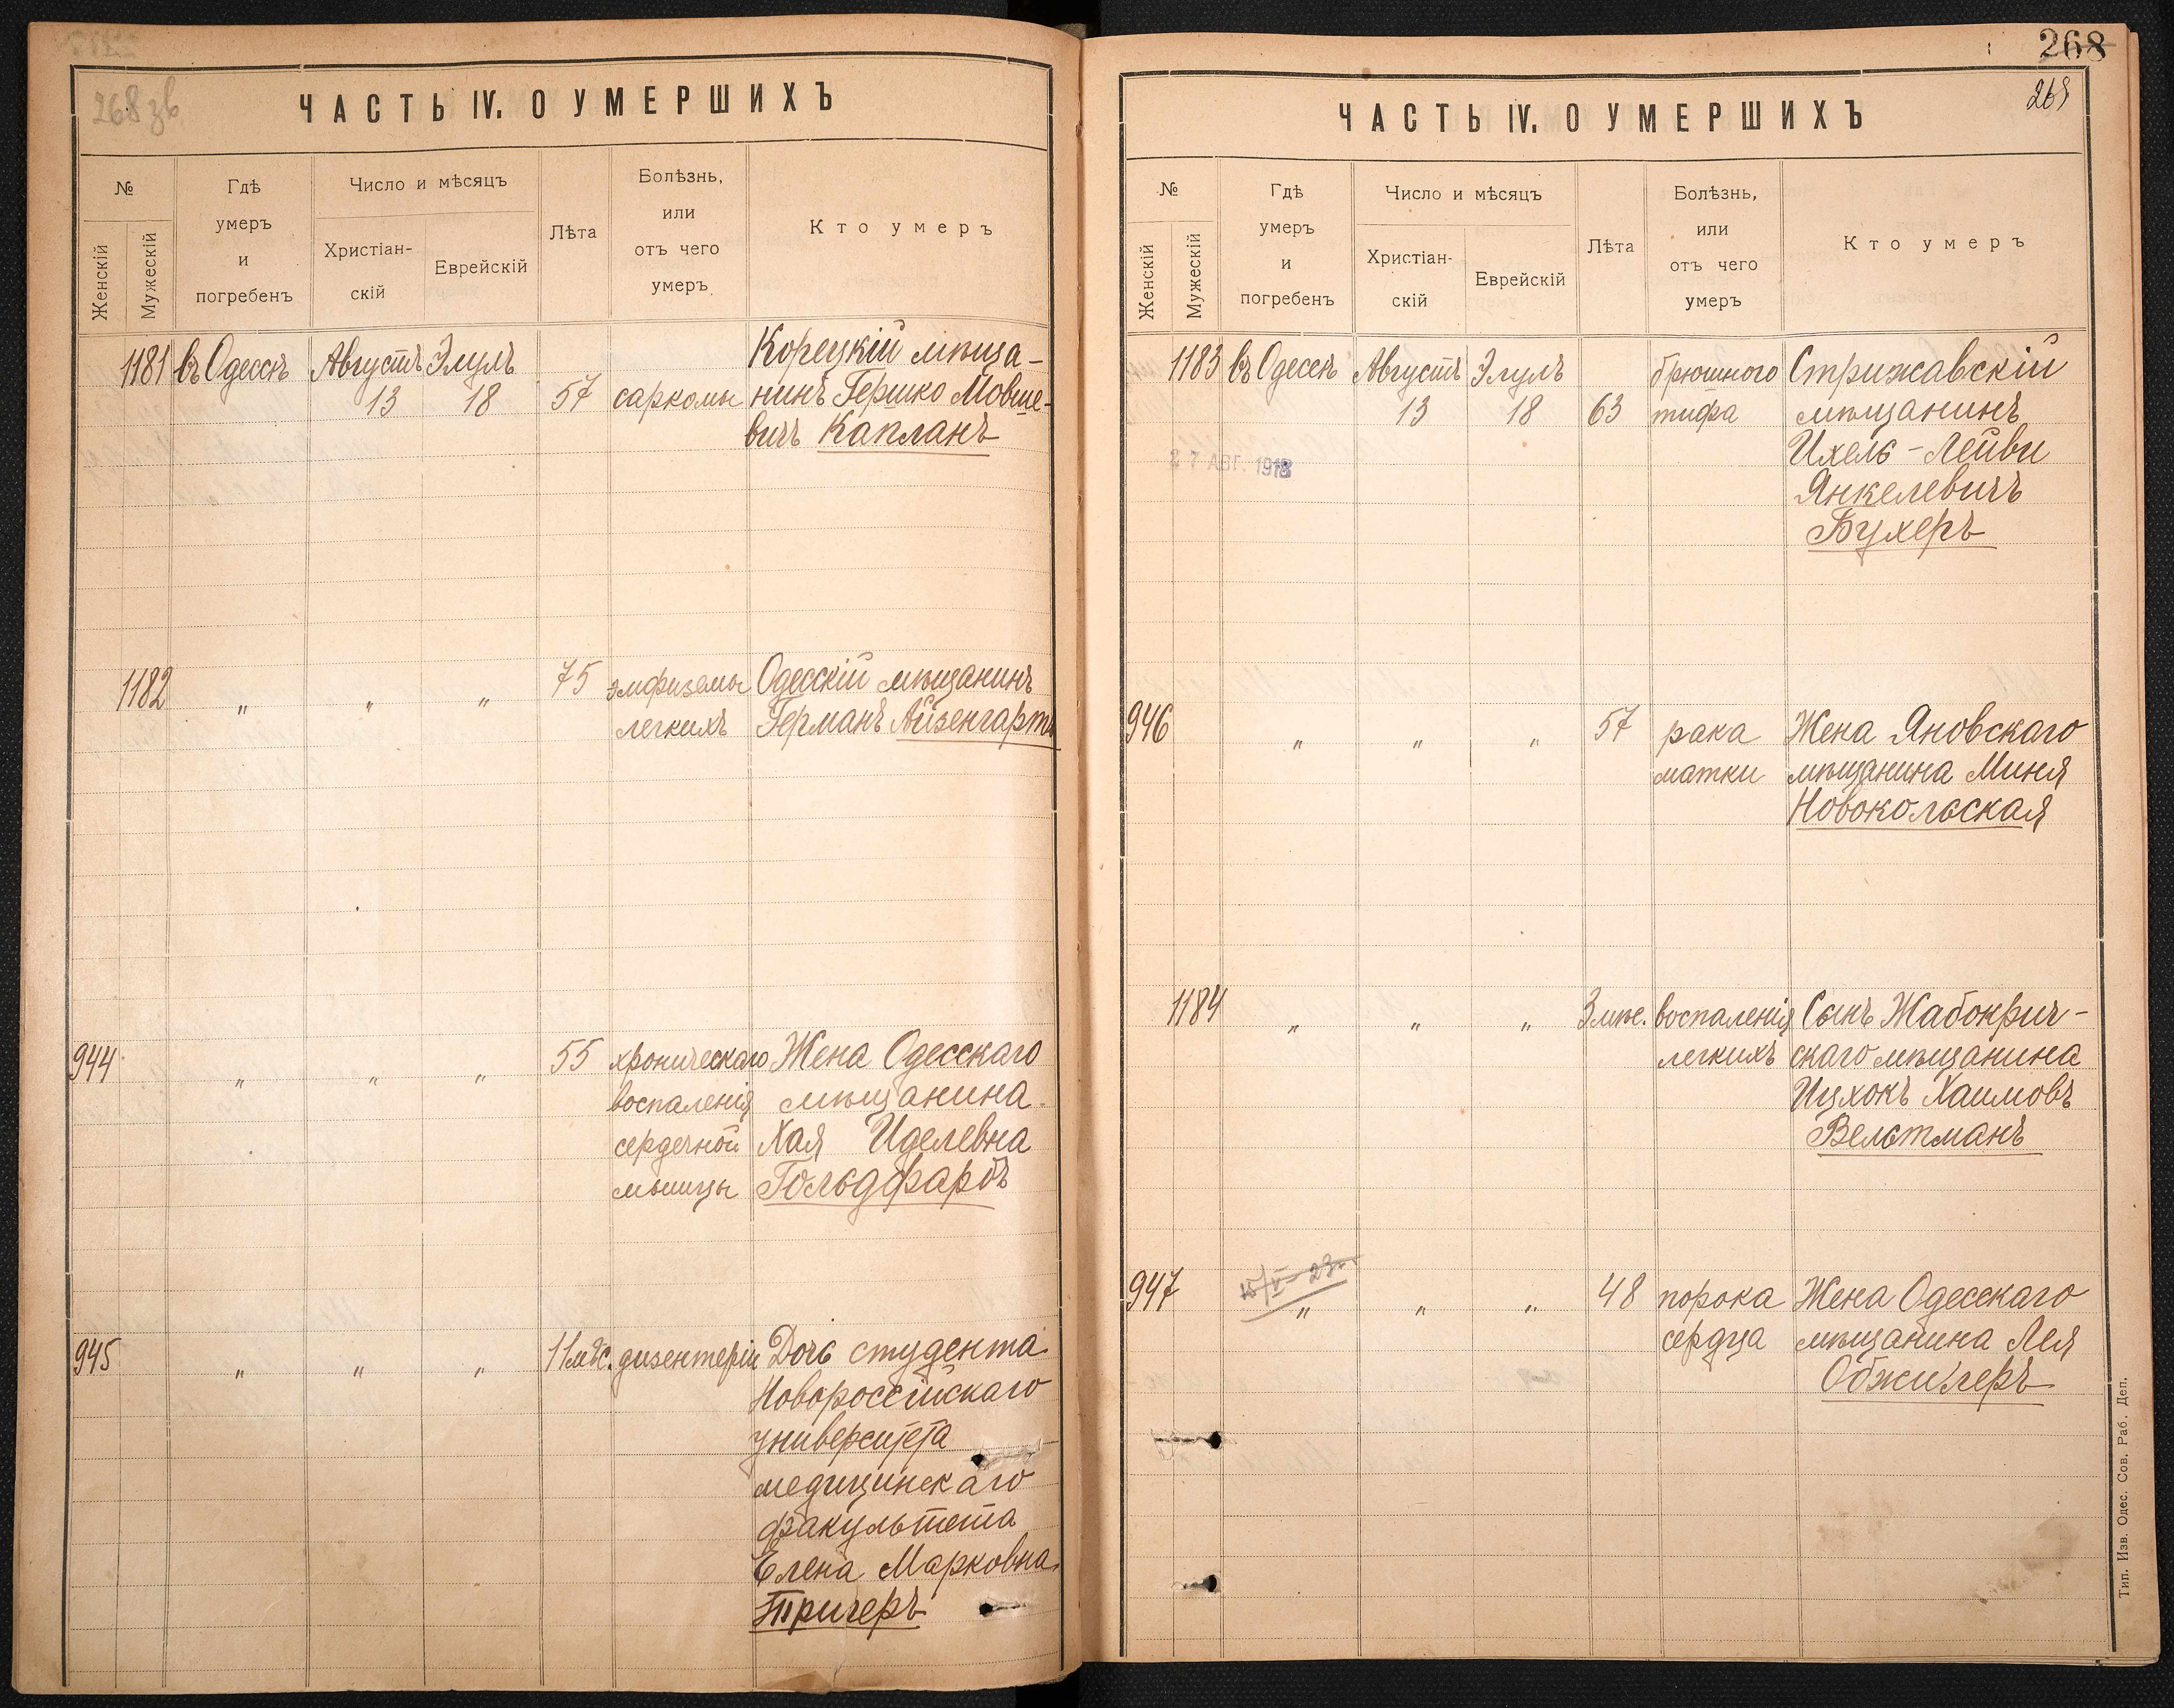 268 зв
ЧАСТЬ IV. О УМЕРШИХЪ
№
Женскій
Мужескій
Гдѣ
умеръ
и
погребенъ
Число и мѣсяцъ
Христіан-
скій
Еврейскій
Лѣта
Болѣзнь,
или
отъ чего
умеръ
Кто умеръ
1181 въ Одессѣ Августъ Элулъ Корецкій мѣща-
13 18 57 саркомы нинъ Гершко Мовше-
вичъ Капланъ
1182 „ „ „ 75 эмфиземы Одесскій мѣщанинъ
легкихъ Германъ Айзенгартъ
944 „ „ „ 55 хроническаго Жена Одесскаго
воспаленія мѣщанина
сердечной Хая Иделевна
мышцы Гольдфарбъ
945 „ „ „ 11 мѣс. дизентеріи Дочь студента
Новороссійскаго
университета
медицинскаго
факультета
Елена Марковна
Тричеръ
268
ЧАСТЬ IV. О УМЕРШИХЪ
№
Женскій
Мужескій
Гдѣ
умеръ
и
погребенъ
Число и мѣсяцъ
Христіан-
скій
Еврейскій
Лѣта
Болѣзнь,
или
отъ чего
умеръ
Кто умеръ
1183 въ Одессѣ Августъ Элулъ брюшного Стрижавскій
13 18 63 тифа мѣщанинъ
27 АВГ. 1918 Ихель-Лейви
Янкелевичъ
Бухеръ
946 „ „ „ 57 рака Жена Яновскаго
матки мѣщанина Миня
Новокольская
1184 „ „ „ 3 мѣс. воспаленія Сынъ Жабокрич-
легкихъ скаго мѣщанина
Ицхокъ Хаимовъ
Вельтманъ
947 „ „ „ 48 порока Жена Одесскаго
сердца мѣщанина Лея
Обжигеръ
Тип. Изв. Одес. Сов. Раб. Деп.